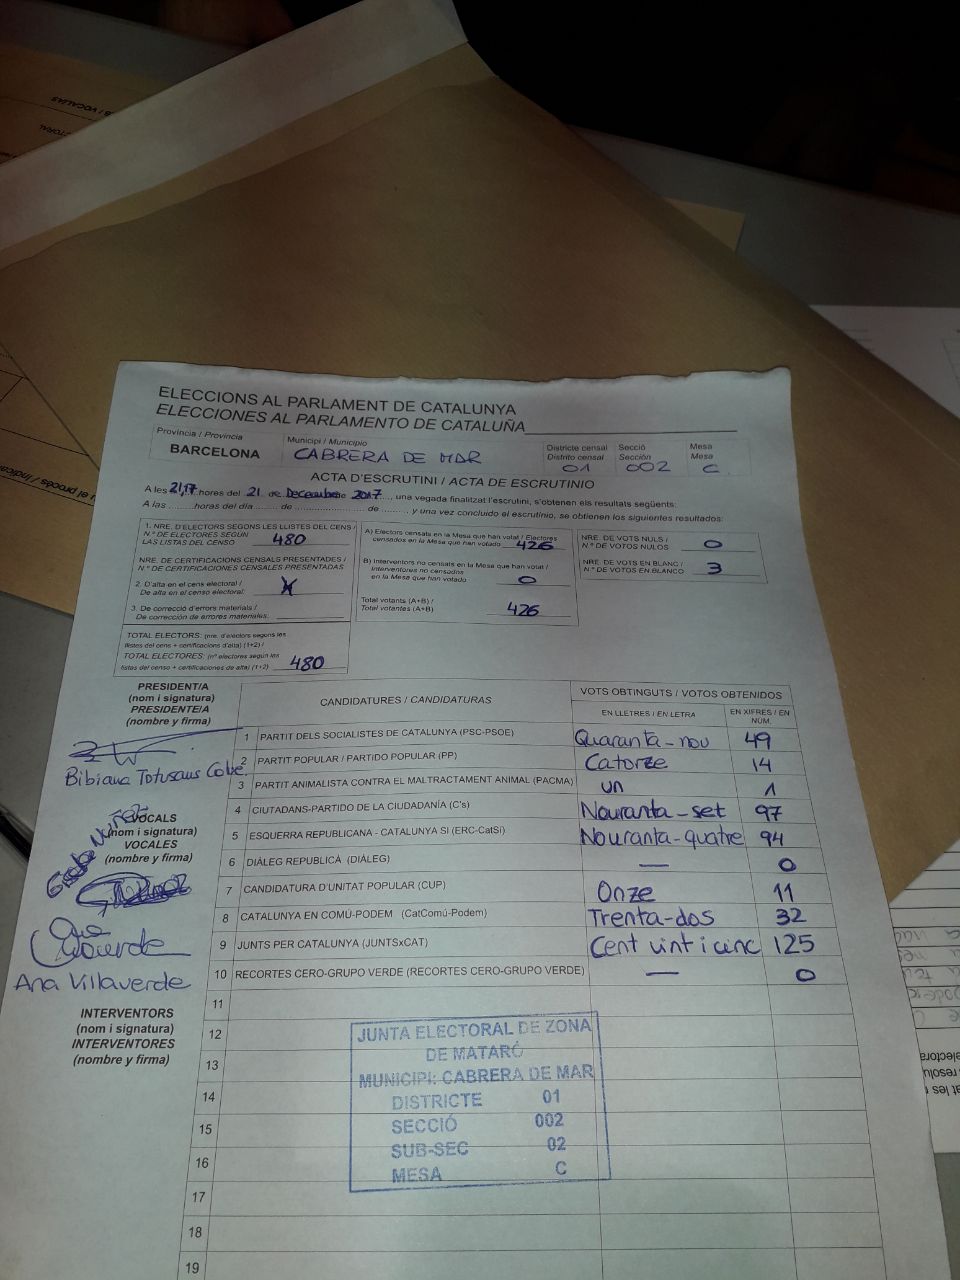 ELECCIONS AL PARLAMENT DE CATALUNYA
ELECCIONES AL PARLAMENTO DE CATALUÑA
Província / Provincia
BARCELONA
Municipi / Municipio
CABRERA DE MAR
Districte censal
Distrito censal
01
Secció
Sección
002
Mesa
Mesa
C
ACTA D'ESCRUTINI / ACTA DE ESCRUTINIO
A les 21,17 hores del 21 de Decembre de 2017, una vegada finalitzat l'escrutini, s'obtenen els resultats següents:
A las ........ horas del día ...... de .................. de ........ y una vez concluido el escrutinio, se obtienen los siguientes resultados:
1. NRE. D'ELECTORS SEGONS LES LLISTES DEL CENS /
N.º DE ELECTORES SEGÚN
LAS LISTAS DEL CENSO
480
NRE. DE CERTIFICACIONS CENSALS PRESENTADES /
N.º DE CERTIFICACIONES CENSALES PRESENTADAS
2. D'alta en el cens electoral /
De alta en el censo electoral:
3. De correcció d'errors materials /
De corrección de errores materiales:
TOTAL ELECTORS: (nre. d'electors segons les
llistes del cens + certificacions d'alta) (1+2) /
TOTAL ELECTORES: (nº electores según las
listas del censo + certificaciones de alta) (1+2)
480
A) Electors censats en la Mesa que han votat / Electores
censados en la Mesa que han votado
426
B) Interventors no censats en la Mesa que han votat /
Interventores no censados
en la Mesa que han votado
0
Total votants (A+B) /
Total votantes (A+B)
426
NRE. DE VOTS NULS /
N.º DE VOTOS NULOS
0
NRE. DE VOTS EN BLANC /
N.º DE VOTOS EN BLANCO
3
PRESIDENT/A
(nom i signatura)
PRESIDENTE/A
(nombre y firma)
Bibiana
VOCALS
(nom i signatura)
VOCALES
(nombre y firma)
Ana Villaverde
INTERVENTORS
(nom i signatura)
INTERVENTORES
(nombre y firma)
CANDIDATURES / CANDIDATURAS
VOTS OBTINGUTS / VOTOS OBTENIDOS
EN LLETRES / EN LETRA
EN XIFRES / EN NÚM.
1 PARTIT DELS SOCIALISTES DE CATALUNYA (PSC-PSOE) Quaranta-nou 49
2 PARTIT POPULAR / PARTIDO POPULAR (PP) Catorze 14
3 PARTIT ANIMALISTA CONTRA EL MALTRACTAMENT ANIMAL (PACMA) un 1
4 CIUTADANS-PARTIDO DE LA CIUDADANÍA (C's) Nouranta-set 97
5 ESQUERRA REPUBLICANA - CATALUNYA SÍ (ERC-CatSí) Nouranta-quatre 94
6 DIÀLEG REPUBLICÀ (DIÀLEG) — 0
7 CANDIDATURA D'UNITAT POPULAR (CUP) Onze 11
8 CATALUNYA EN COMÚ-PODEM (CatComú-Podem) Trenta-dos 32
9 JUNTS PER CATALUNYA (JUNTSxCAT) Cent vint i cinc 125
10 RECORTES CERO-GRUPO VERDE (RECORTES CERO-GRUPO VERDE) — 0
11
12
13
14
15
16
17
18
19
JUNTA ELECTORAL DE ZONA
DE MATARÓ
MUNICIPI: CABRERA DE MAR
DISTRICTE 01
SECCIÓ 002
SUB-SEC 02
MESA C